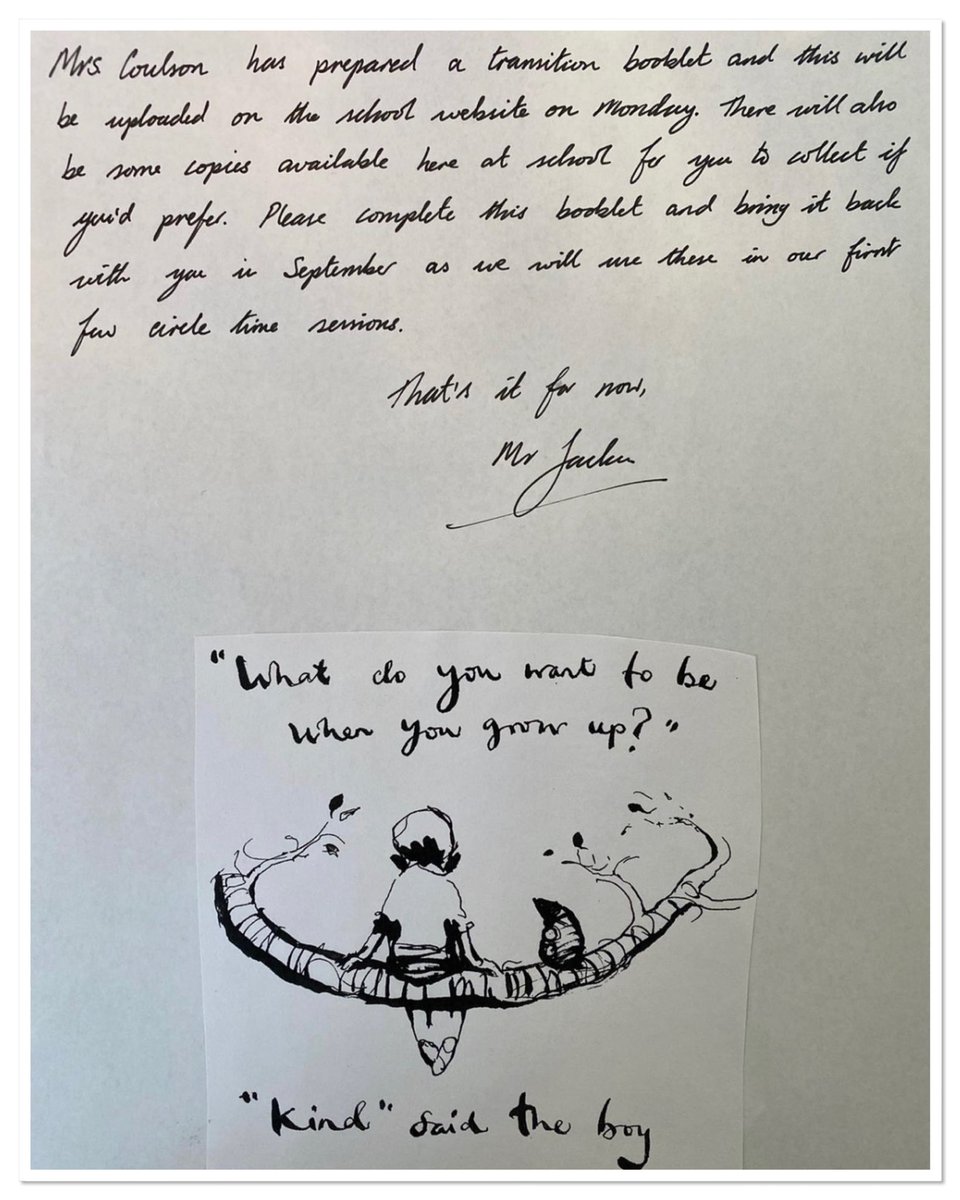 Mrs Coulson has prepared a transition booklet and this will
be uploaded on the school website on Monday. There will also
be some copies available here at school for you to collect if
you'd prefer. Please complete this booklet and bring it back
with you in September as we will use these in our first
few circle time sessions.
That's it for now,
Mr
"What do you want to be
when you grow up?"
"Kind" said the boy